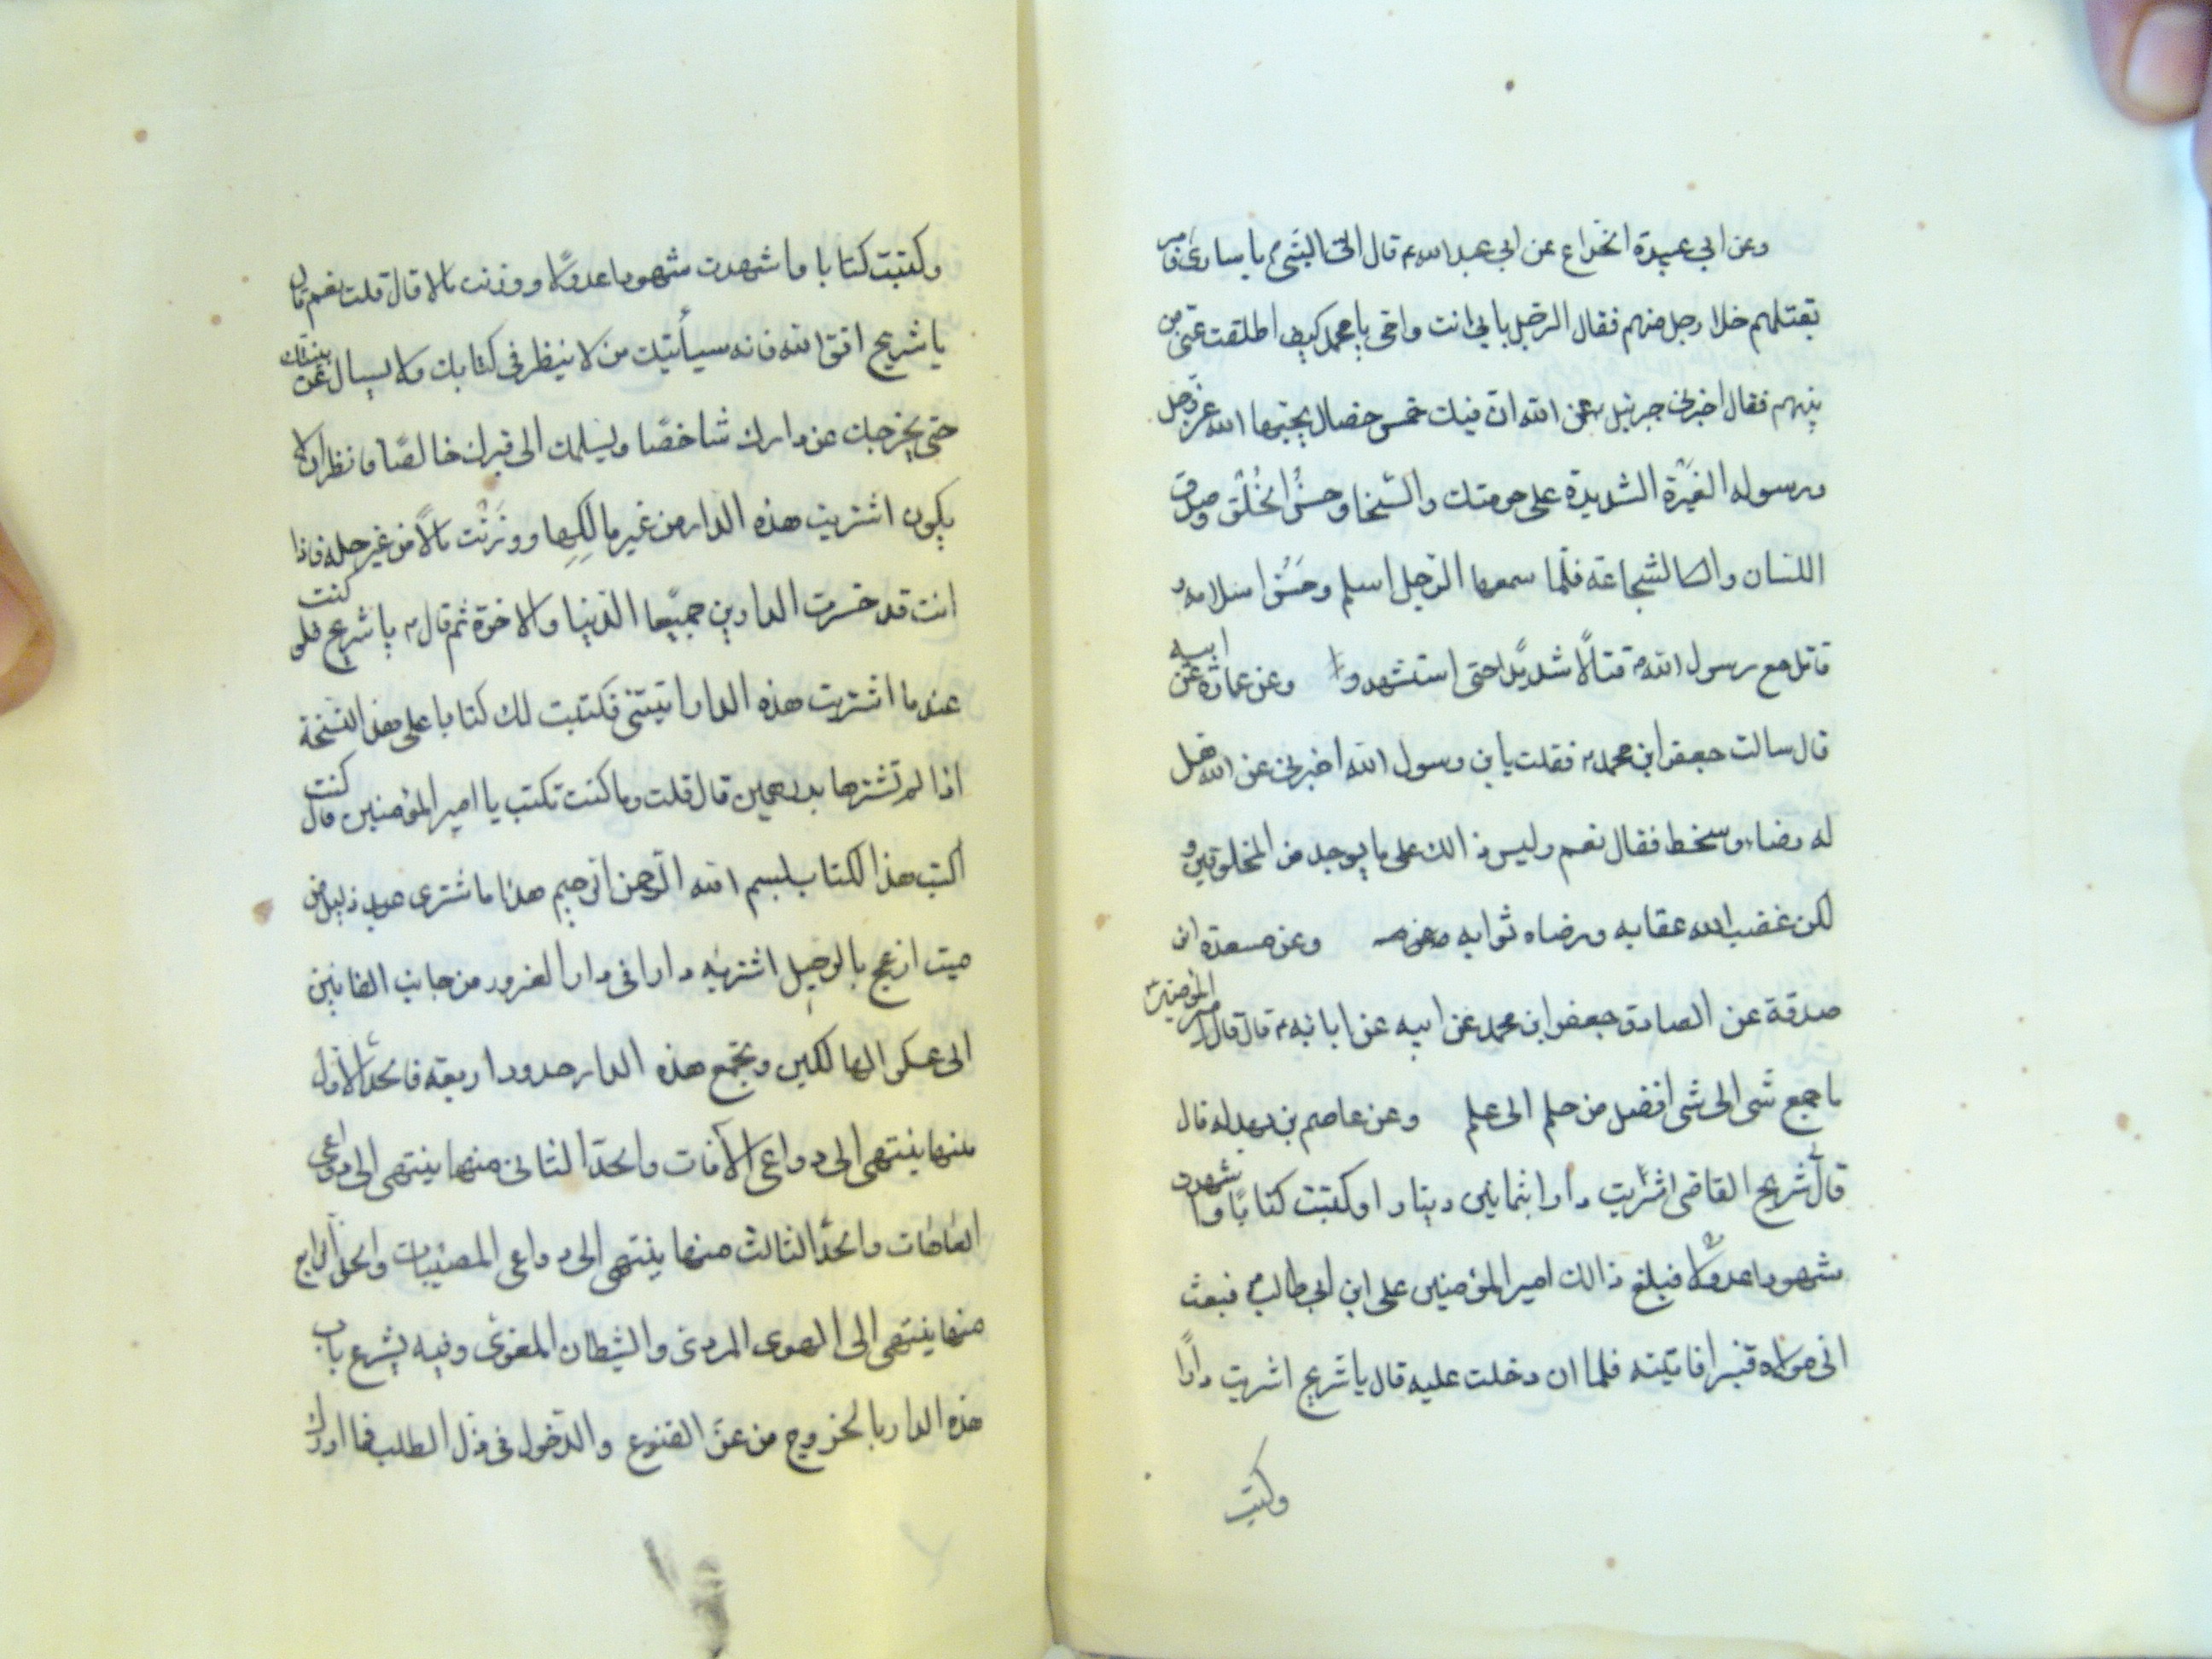 وعن ابي عبيدة الخداع عن ابي عبد الله ع قال اتى النبى ص باسارى فامر
بقتلهم خلا رجل منهم فقال الرجل بابي انت وامى يا محمد كيف اطلقت عنى من
بينهم فقال اخبرنى جبرئيل ع عن الله ان فيك خمس خصال يحبها الله عز وجل
ورسوله الغيرة الشديدة على حرمتك والسخا وحسن الخلق وصدق
اللسان والشجاعة فلما سمعها الرجل اسلم وحسن اسلامه و
قاتل مع رسول الله ص قتالا شديدا حتى استشهد وعن عمارة عن ابيه
قال سالت جعفر ابن محمد ع فقلت يابن رسول الله اخبرنى عن الله هل
له رضاء وسخط فقال نعم وليس ذالك على ما يوجد من المخلوقين و
لكن غضب الله عقابه ورضاه ثوابه وعن مسعدة ابن
صدقة عن الصادق جعفر ابن محمد عن ابيه عن ابائه ع قال قال امير المؤمنين ع
ما جمع شى الى شى افضل من حلم الى علم وعن عاصم بن بهدله قال
قال شريح القاضى اشتريت دارا بثمانين دينارا وكتبت كتابا واشهدت
شهودا عدولا فبلغ ذالك امير المؤمنين على ابن ابي طالب ع فبعث
الى مولاه قنبرا فاتيته فلما ان دخلت عليه قال يا شريح اشريت دارا
وكتبت
وكتبت كتابا واشهدت شهودا عدولا ووزنت مالا قال قلت نعم قال
يا شريح اتق الله فانه سيأتيك من لا ينظر فى كتابك ولا يسال عن بينتك
حتى يخرجك عن دارك شاخصا ويسلمك الى قبرك خالصا فانظر ان لا
يكون اشتريت هذه الدار من غير مالكها ووزنت مالا من غير حله فاذا
انت قد خسرت الدارين جميعا الدنيا والاخرة ثم قال ع يا شريح فلو كنت
عند ما اشتريت هذه الدار اتيتنى فكتبت لك كتابا على هذا النسخة
اذا لم تشترها بدرهمين قال قلت وما كنت تكتب يا امير المؤمنين قال كنت
اكتب هذا الكتاب بسم الله الرحمن الرحيم هذا ما شترى عبد ذليل من
ميت ازعج بالرحيل اشتريه دارا فى دار الغرور من جانب الفانين
الى عسكر الهالكين وتجمع هذه الدار حدودا اربعة فالحد الاول
منها ينتهى الى دواعى الآفات والحد الثانى منها ينتهى الى دواعى
العاهات والحد الثالث منها ينتهى الى دواعى المصيبات والحد الرابع
منها ينتهى الى الهوى المردى والشيطان المغوى وفيه يشرع باب
هذه الدار بالخروج من عز القنوع والدخول فى ذل الطلب فما ادرك